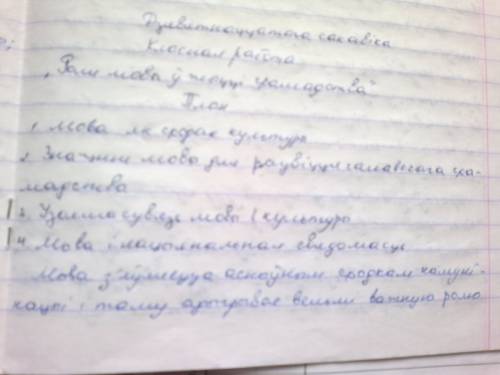 Дзевятнаццатага сакавіка
Класная работа
„Роля мовы ў жыцці грамадства"
План
1. Мова як сродак культуры
2. Значэнне мовы для развіцця чалавечага гра-
мадства
3. Узаемасувязь мовы і культуры
4. Мова і нацыянальная свядомасць
Мова з'яўляецца асноўным сродкам камуні-
кацыі і таму адыгрывае вельмі важную ролю